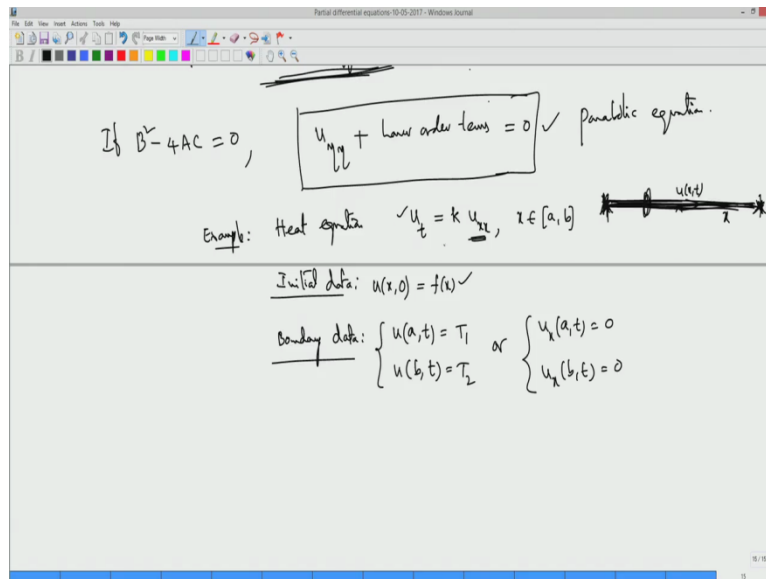 Partial differential equations-10-05-2017 - Windows Journal
File Edit View Insert Actions Tools Help
Page Width
B I
If B² - 4AC = 0, u_ηη + lower order terms = 0 ✓ parabolic equation.
Example: Heat equation ✓ u_t = k u_xx, x ∈ [a, b] u(x,t) x
Initial data: u(x,0) = f(x) ✓
Boundary data: { u(a,t) = T₁ or { u_x(a,t) = 0
u(b,t) = T₂ u_x(b,t) = 0
15 / 15
15